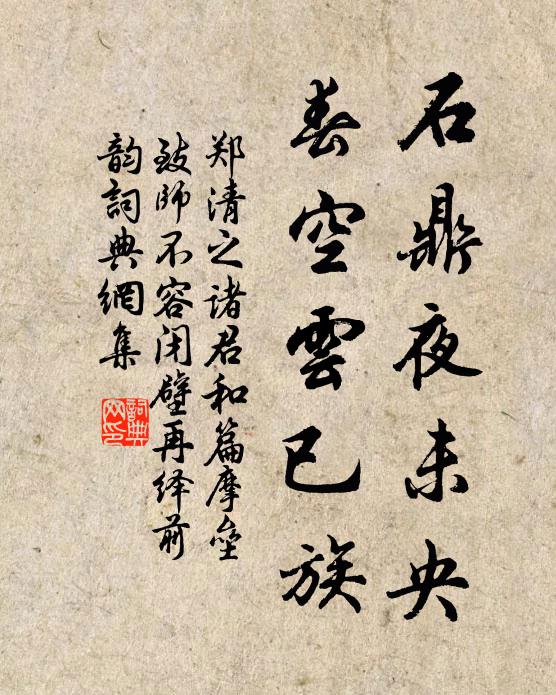 石鼎夜未央
春空雲已族
郑清之诸君和篇摩垒
致师不容闭壁再绎前
韵詞典網集
詞典网印